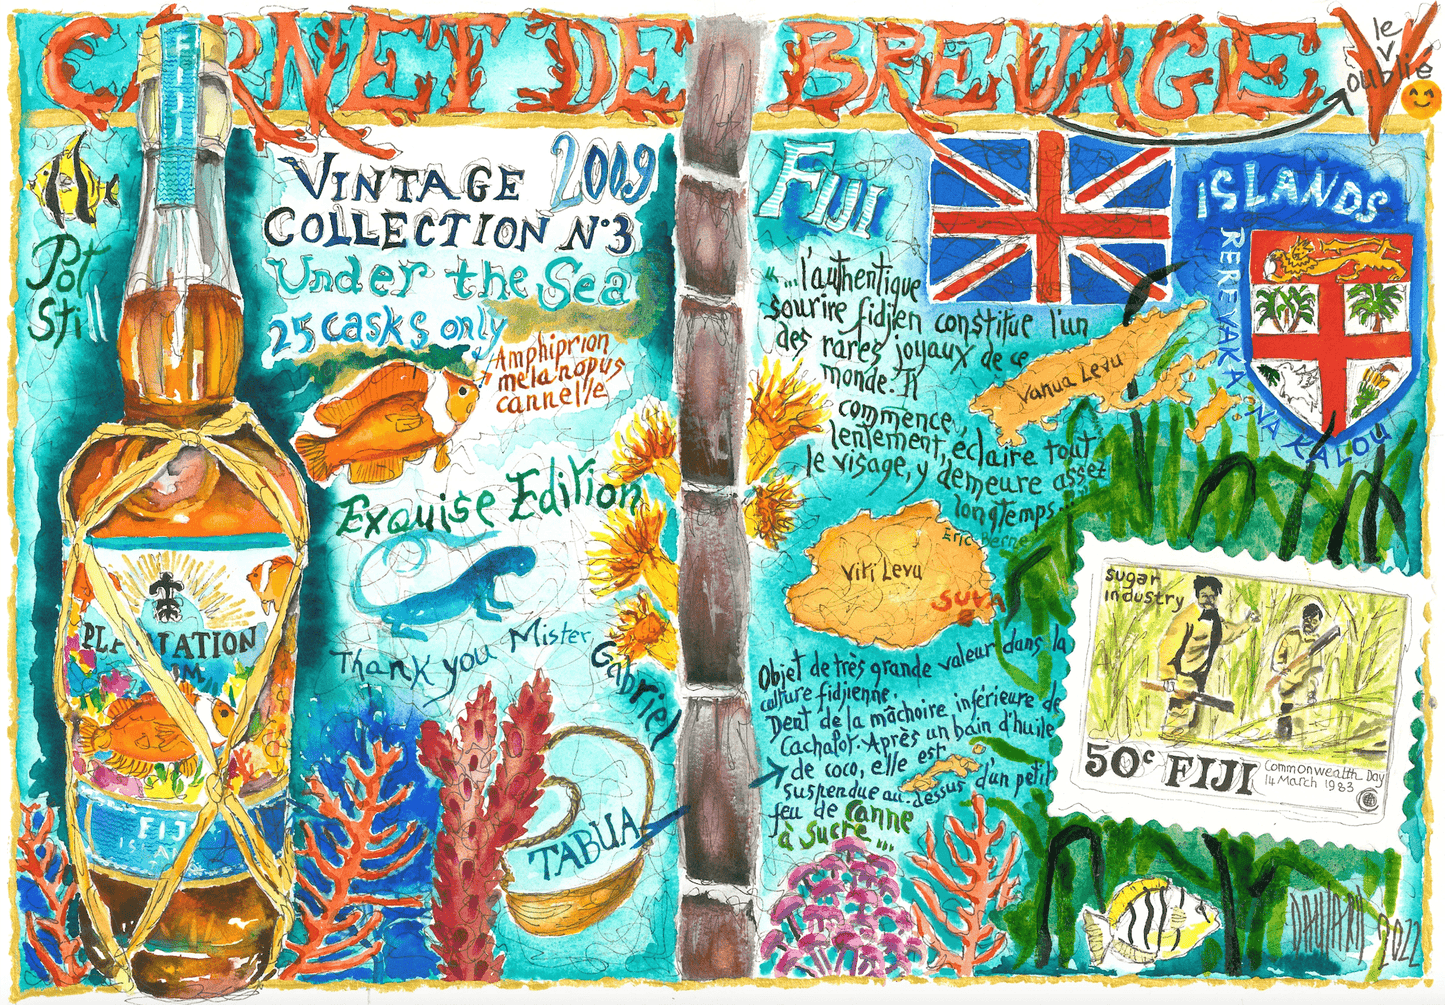 CARNET DE BREUVAGE
le
v
oublié
FIJI
VINTAGE 2009
COLLECTION N°3
Under the Sea
25 casks only
Pot
Still
Amphiprion
melanopus
cannelle
Exquise Edition
Thank you Mister
Gabriel
PLANTATION
RUM
FIJI
ISLAN
TABUA
FIJI
ISLANDS
REREVAKA NA KALOU
"...l'authentique
sourire fidjien constitue l'un
des rares joyaux de ce
monde. Il
commence,
lentement, éclaire tout
le visage, y demeure assez
longtemps...
Eric Berne
Vanua Levu
Viti Levu
SUVA
Objet de très grande valeur dans la
culture fidjienne.
Dent de la mâchoire inférieure de
Cachalot. Après un bain d'huile
de coco, elle est
suspendue au-dessus d'un petit
feu de canne
à sucre...
sugar
industry
50c FIJI
Commonwealth Day
14 March 1983
2022